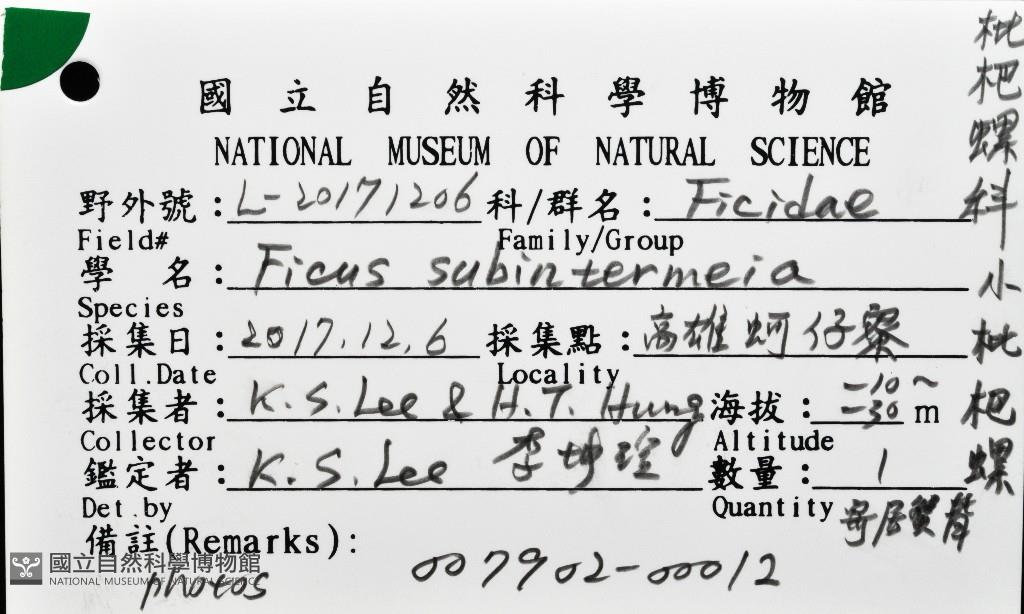 國立自然科學博物館
NATIONAL MUSEUM OF NATURAL SCIENCE
野外號：L-20171206 科/群名：Ficidae
Field# Family/Group
學名：Ficus subintermeia
Species
採集日：2017.12.6 採集點：高雄蚵仔寮
Coll.Date Locality
採集者：K.S.Lee & H.T. Hung 海拔：-10~-30 m
Collector Altitude
鑑定者：K.S.Lee 李坤瑄 數量：1
Det.by Quantity 寄居蟹聲
備註(Remarks)：
photos 007902-00012
枇杷螺科 小枇杷螺
國立自然科學博物館
NATIONAL MUSEUM OF NATURAL SCIENCE